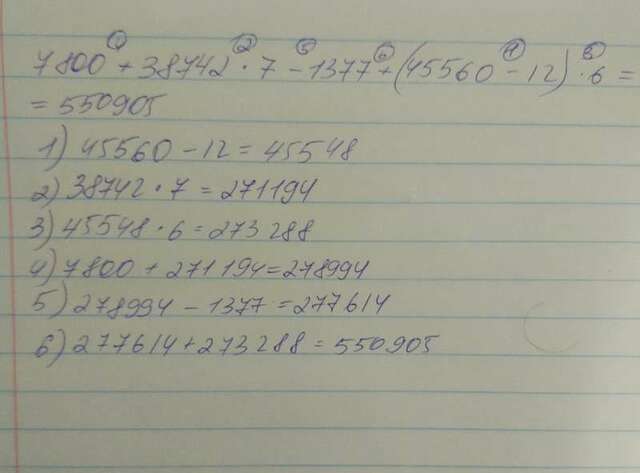 7800 + 38742 · 7 - 1377 + (45560 - 12) · 6 =
= 550905
1) 45560 - 12 = 45548
2) 38742 · 7 = 271194
3) 45548 · 6 = 273288
4) 7800 + 271194 = 278994
5) 278994 - 1377 = 277614
6) 277614 + 273288 = 550905